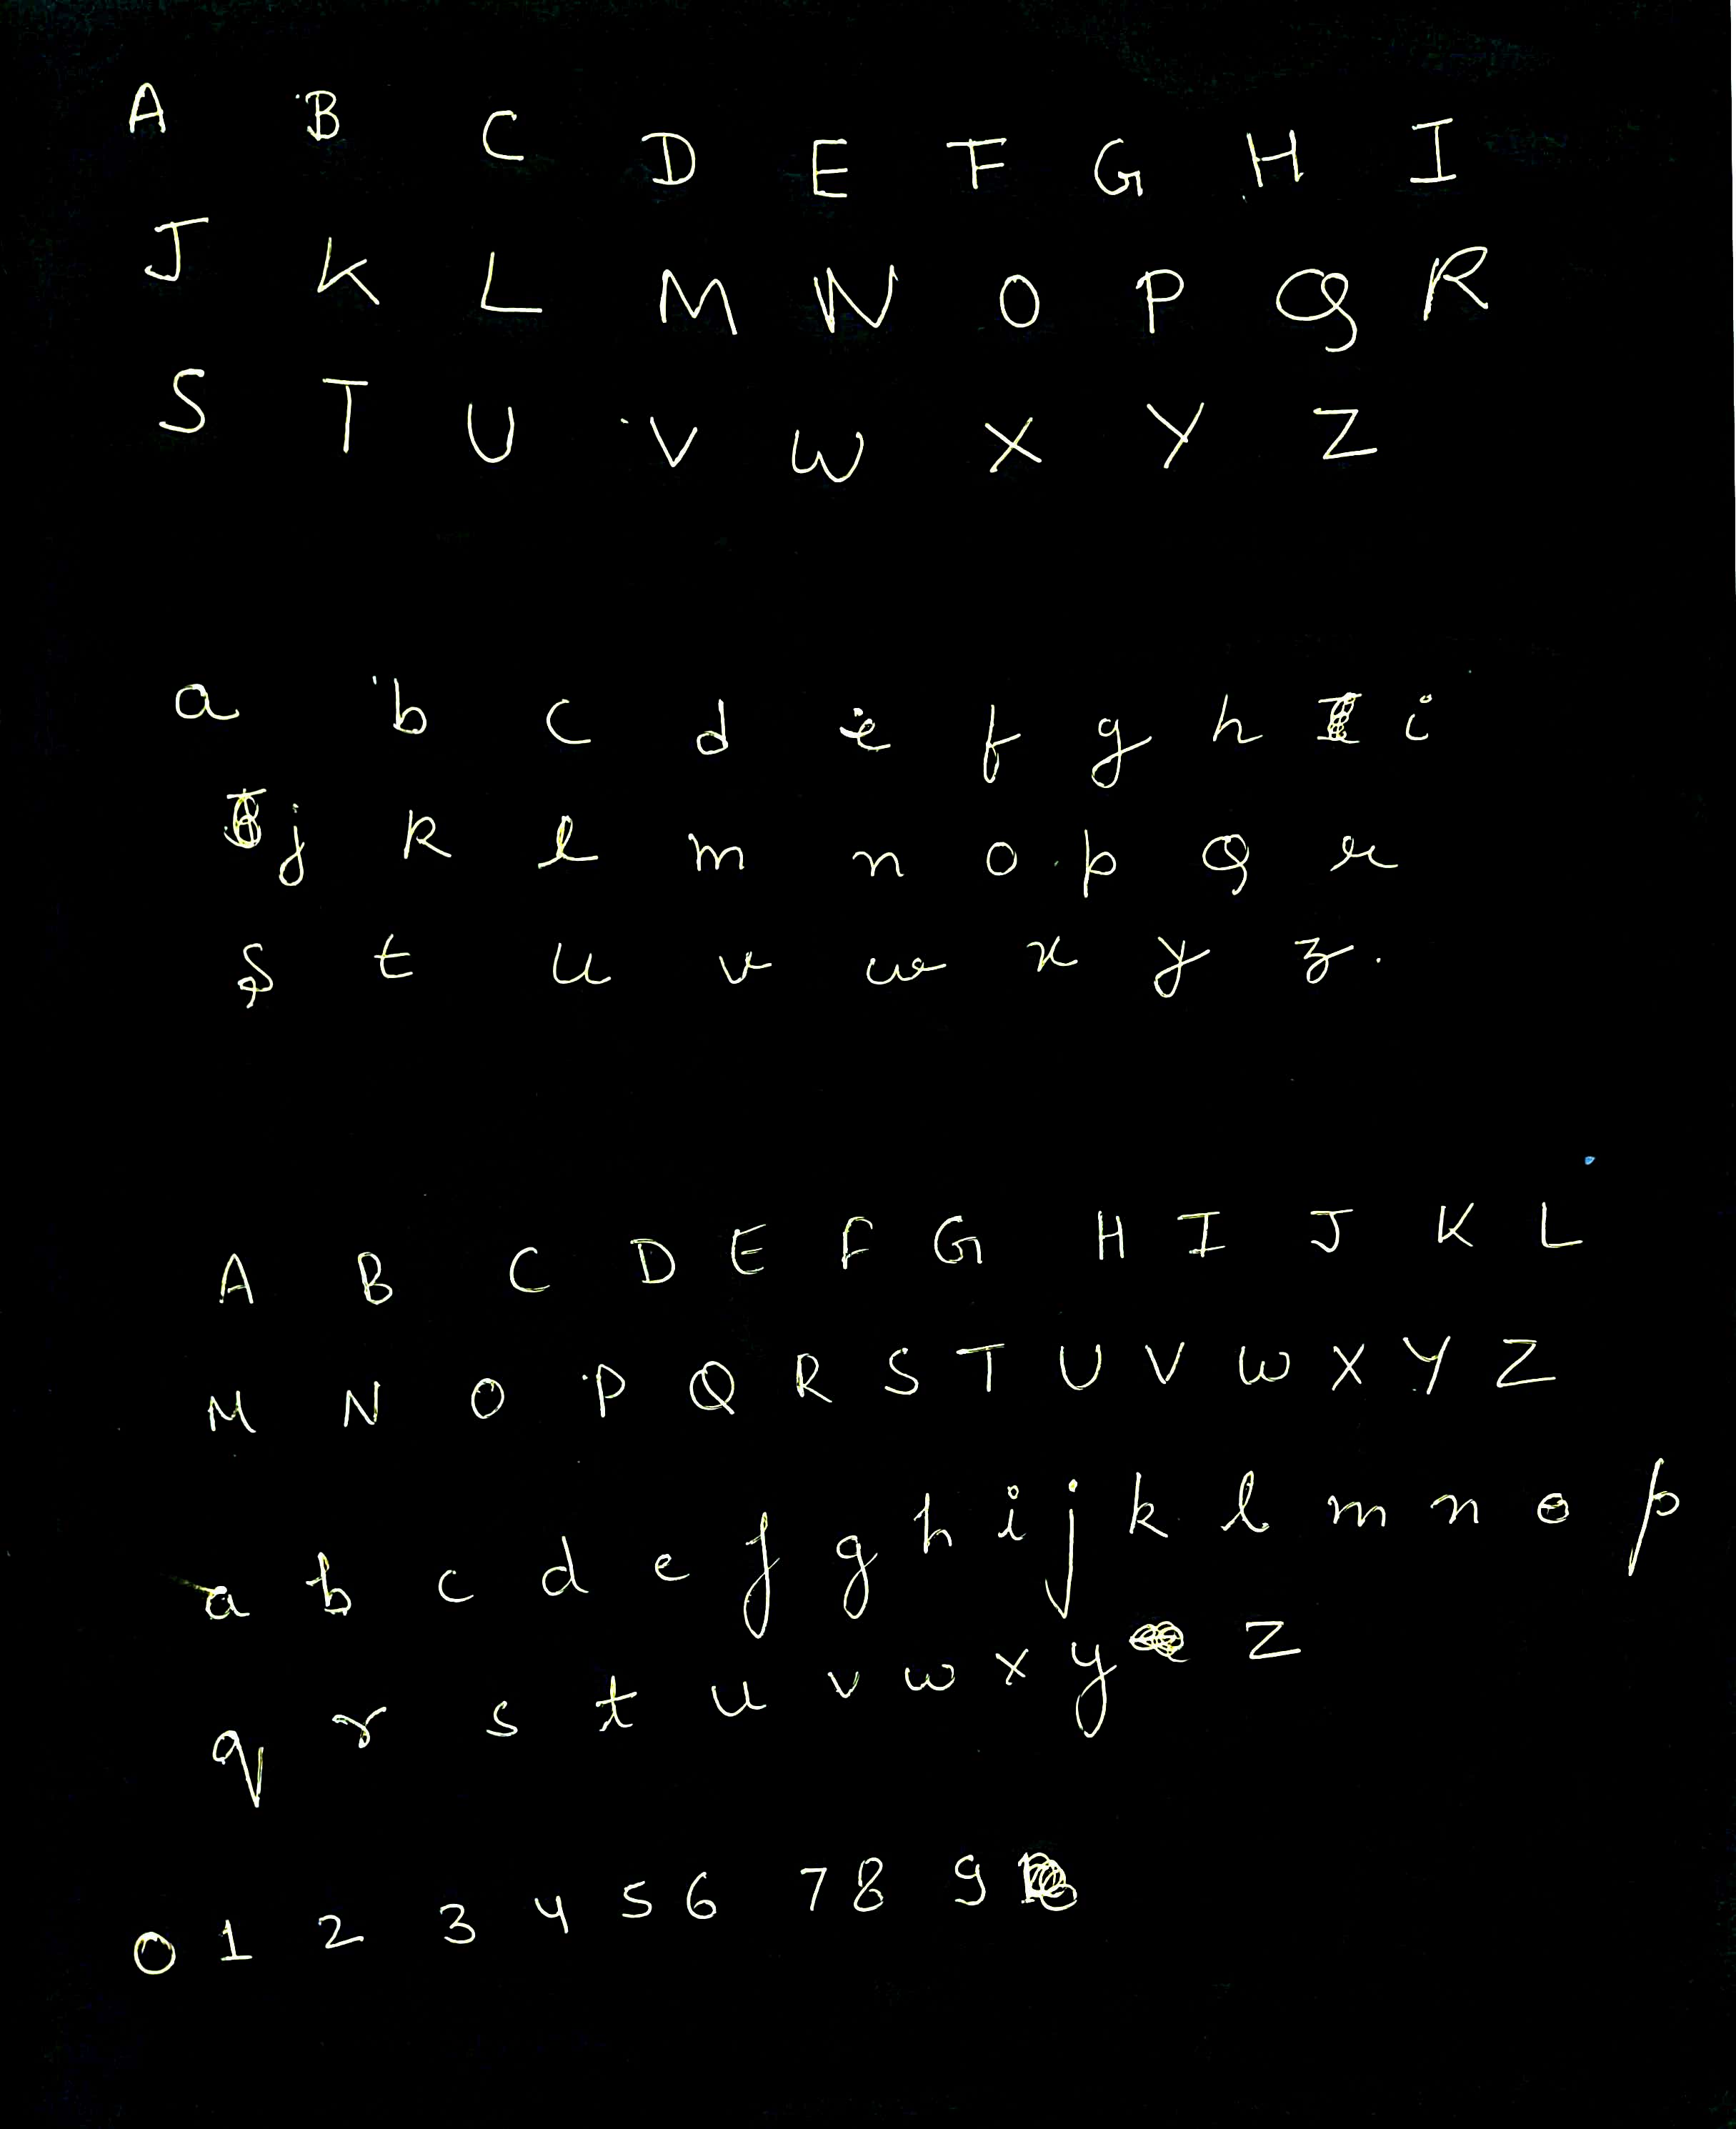 A B C D E F G H I
J K L M N O P Q R
S T U V W X Y Z
a b c d e f g h i
j k l m n o p Q r
s t u v w x y z.
A B C D E F G H I J K L
M N O P Q R S T U V W X Y Z
a b c d e f g h i j k l m n o p
q r s t u v w x y z
0 1 2 3 4 5 6 7 8 9